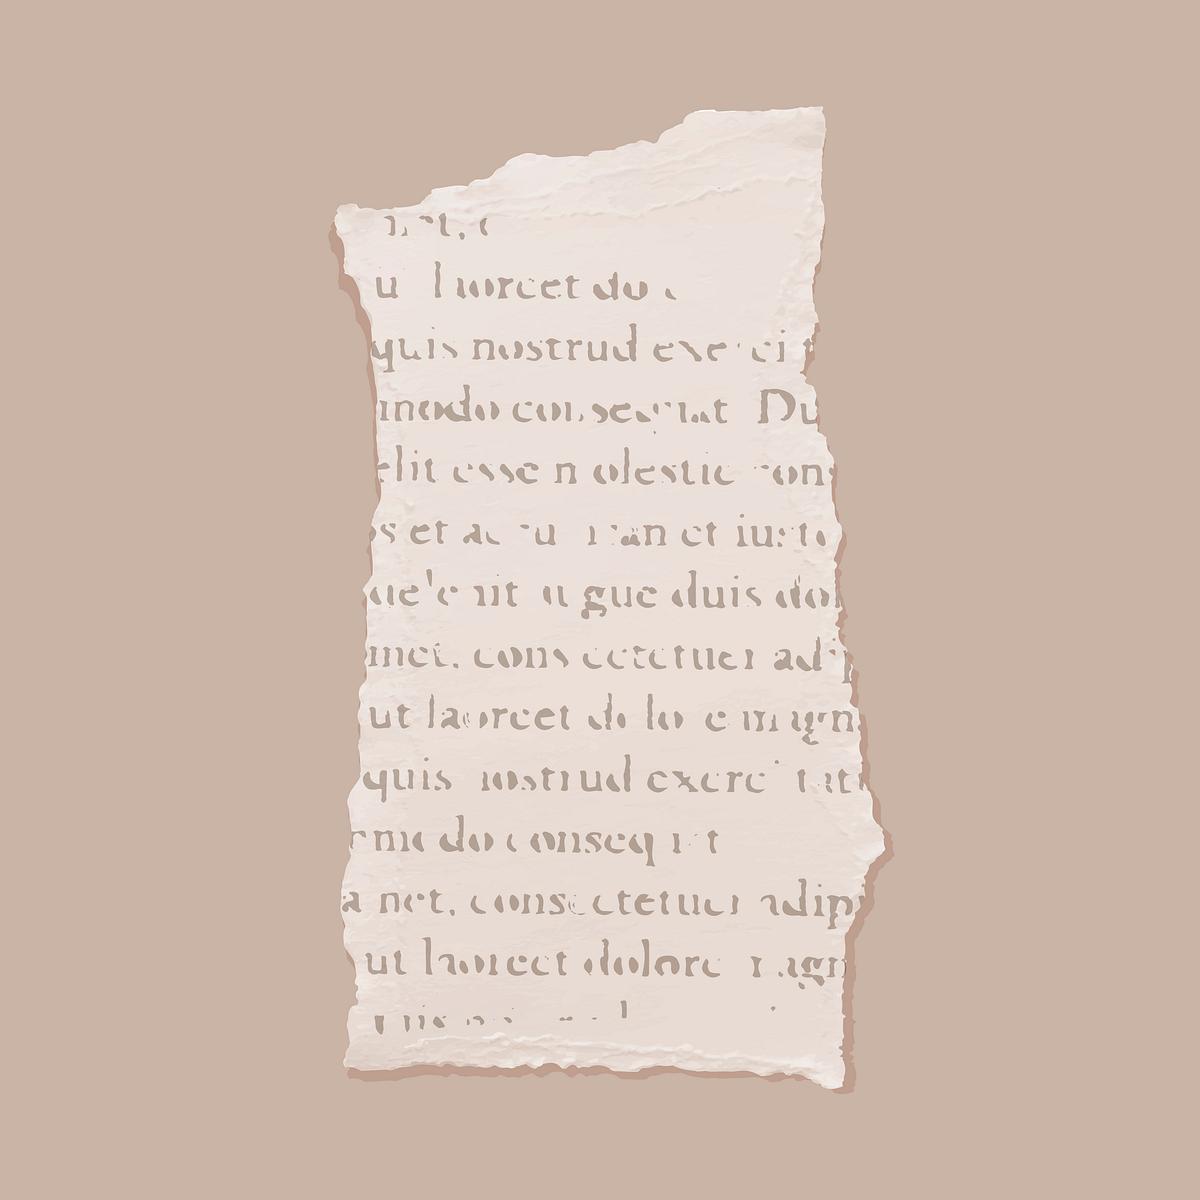 et,
u laorcet do
quis nostrud exerci t
modo consequat Du
elit esse molestie cons
os et accu an et iusto
ue le nit augue duis dol
met, cons ectetuer adip
ut laorcet do lo e magn
quis nostrud exerc tati
mmodo conseq t
a met, consectetuer adipi
ut laoreet dolore magn